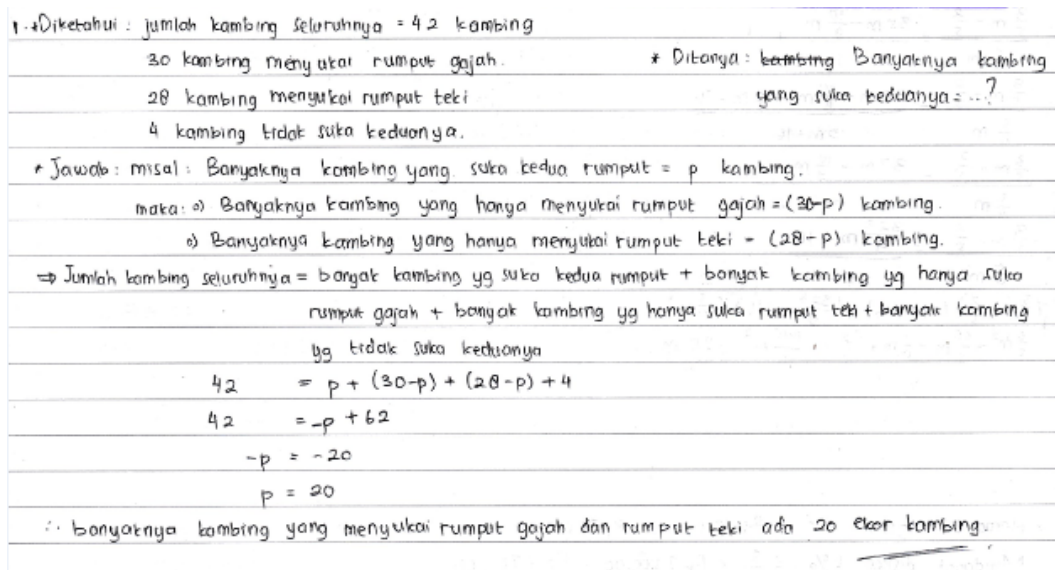 1. *Diketahui : jumlah kambing seluruhnya = 42 kambing
30 kambing menyukai rumput gajah.
28 kambing menyukai rumput teki
4 kambing tidak suka keduanya.
* Ditanya : kambing Banyaknya kambing
yang suka keduanya = ...?
* Jawab : misal : Banyaknya kambing yang suka kedua rumput = p kambing.
maka : o) Banyaknya kambing yang hanya menyukai rumput gajah = (30-p) kambing.
o) Banyaknya kambing yang hanya menyukai rumput teki = (28-p) kambing.
⇒ Jumlah kambing seluruhnya = banyak kambing yg suka kedua rumput + banyak kambing yg hanya suka
rumput gajah + banyak kambing yg hanya suka rumput teki + banyak kambing
yg tidak suka keduanya
42 = p + (30-p) + (28-p) + 4
42 = -p + 62
-p = -20
p = 20
∴ banyaknya kambing yang menyukai rumput gajah dan rumput teki ada 20 ekor kambing.